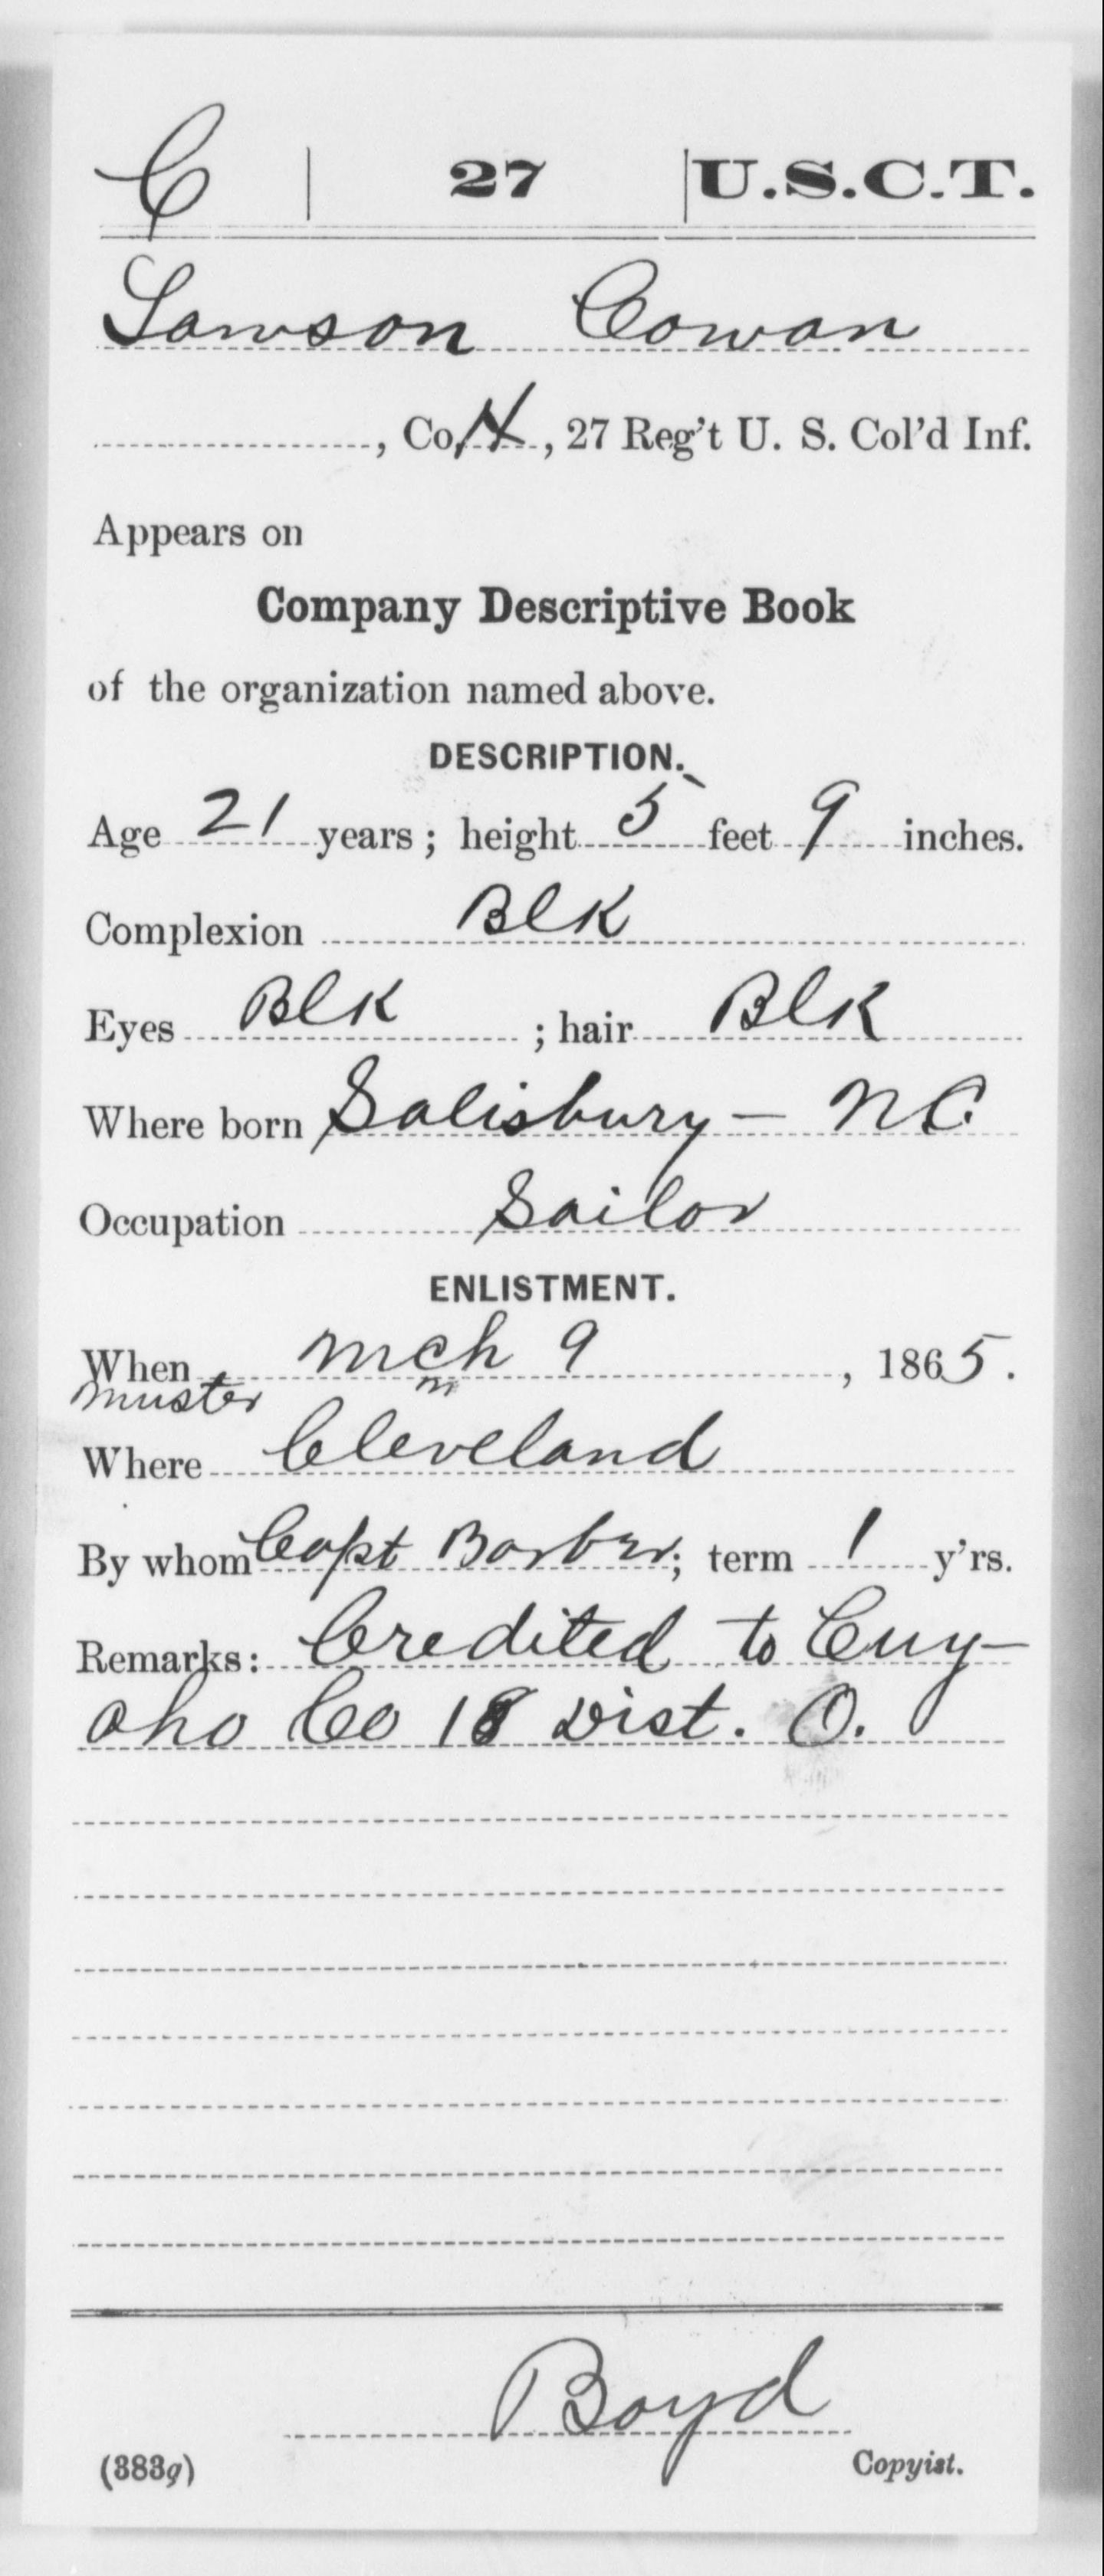 C | 27 | U.S.C.T.
Lawson Cowan
, Co. H, 27 Reg't U. S. Col'd Inf.
Appears on
Company Descriptive Book
of the organization named above.
DESCRIPTION.
Age 21 years; height 5 feet 9 inches.
Complexion Blk
Eyes Blk ; hair Blk
Where born Salisbury - NC
Occupation Sailor
ENLISTMENT.
When mch 9, 1865.
muster m
Where Cleveland
By whom Capt Barber; term 1 y'rs.
Remarks: Credited to Cuy-
aho Co 18 Dist. O.
Boyd
(383g) Copyist.